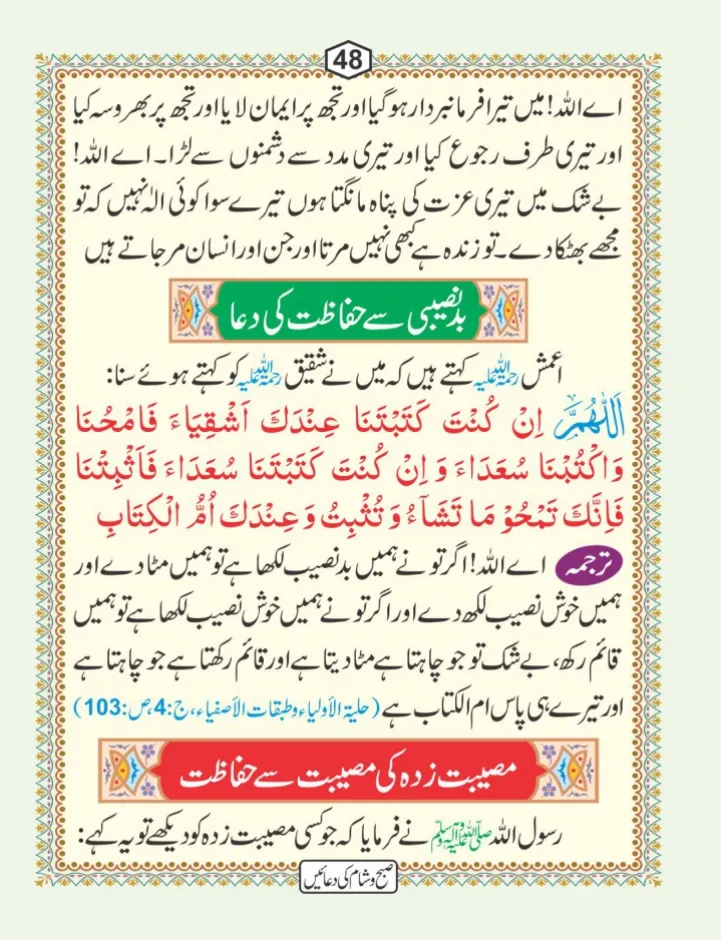 48
اے اللہ! میں تیرا فرمانبردار ہوگیا اور تجھ پر ایمان لایا اور تجھ پر بھروسہ کیا
اور تیری طرف رجوع کیا اور تیری مدد سے دشمنوں سے لڑا۔ اے اللہ!
بے شک میں تیری عزت کی پناہ مانگتا ہوں تیرے سوا کوئی الٰہ نہیں کہ تو
مجھے بھٹکا دے۔ تو زندہ ہے کبھی نہیں مرتا اور جن اور انسان مر جاتے ہیں
بدنصیبی سے حفاظت کی دعا
اعمش رحمۃ اللہ علیہ کہتے ہیں کہ میں نے شقیق رحمۃ اللہ علیہ کو کہتے ہوئے سنا:
اَللّٰهُمَّ اِنْ كُنْتَ كَتَبْتَنَا عِنْدَكَ اَشْقِيَاءَ فَامْحُنَا
وَاكْتُبْنَا سُعَدَاءَ وَ اِنْ كُنْتَ كَتَبْتَنَا سُعَدَاءَ فَاَثْبِتْنَا
فَاِنَّكَ تَمْحُوْ مَا تَشَآءُ وَ تُثْبِتُ وَعِنْدَكَ اُمُّ الْكِتَابِ
ترجمہ اے اللہ! اگر تو نے ہمیں بدنصیب لکھا ہے تو ہمیں مٹا دے اور
ہمیں خوش نصیب لکھ دے اور اگر تو نے ہمیں خوش نصیب لکھا ہے تو ہمیں
قائم رکھ، بے شک تو جو چاہتا ہے مٹا دیتا ہے اور قائم رکھتا ہے جو چاہتا ہے
اور تیرے ہی پاس ام الکتاب ہے (حلیۃ الأولیاء وطبقات الأصفیاء، ج:4، ص:103)
مصیبت زدہ کی مصیبت سے حفاظت
رسول اللہ صلی اللہ علیہ وسلم نے فرمایا کہ جو کسی مصیبت زدہ کو دیکھے تو یہ کہے:
صبح و شام کی دعائیں